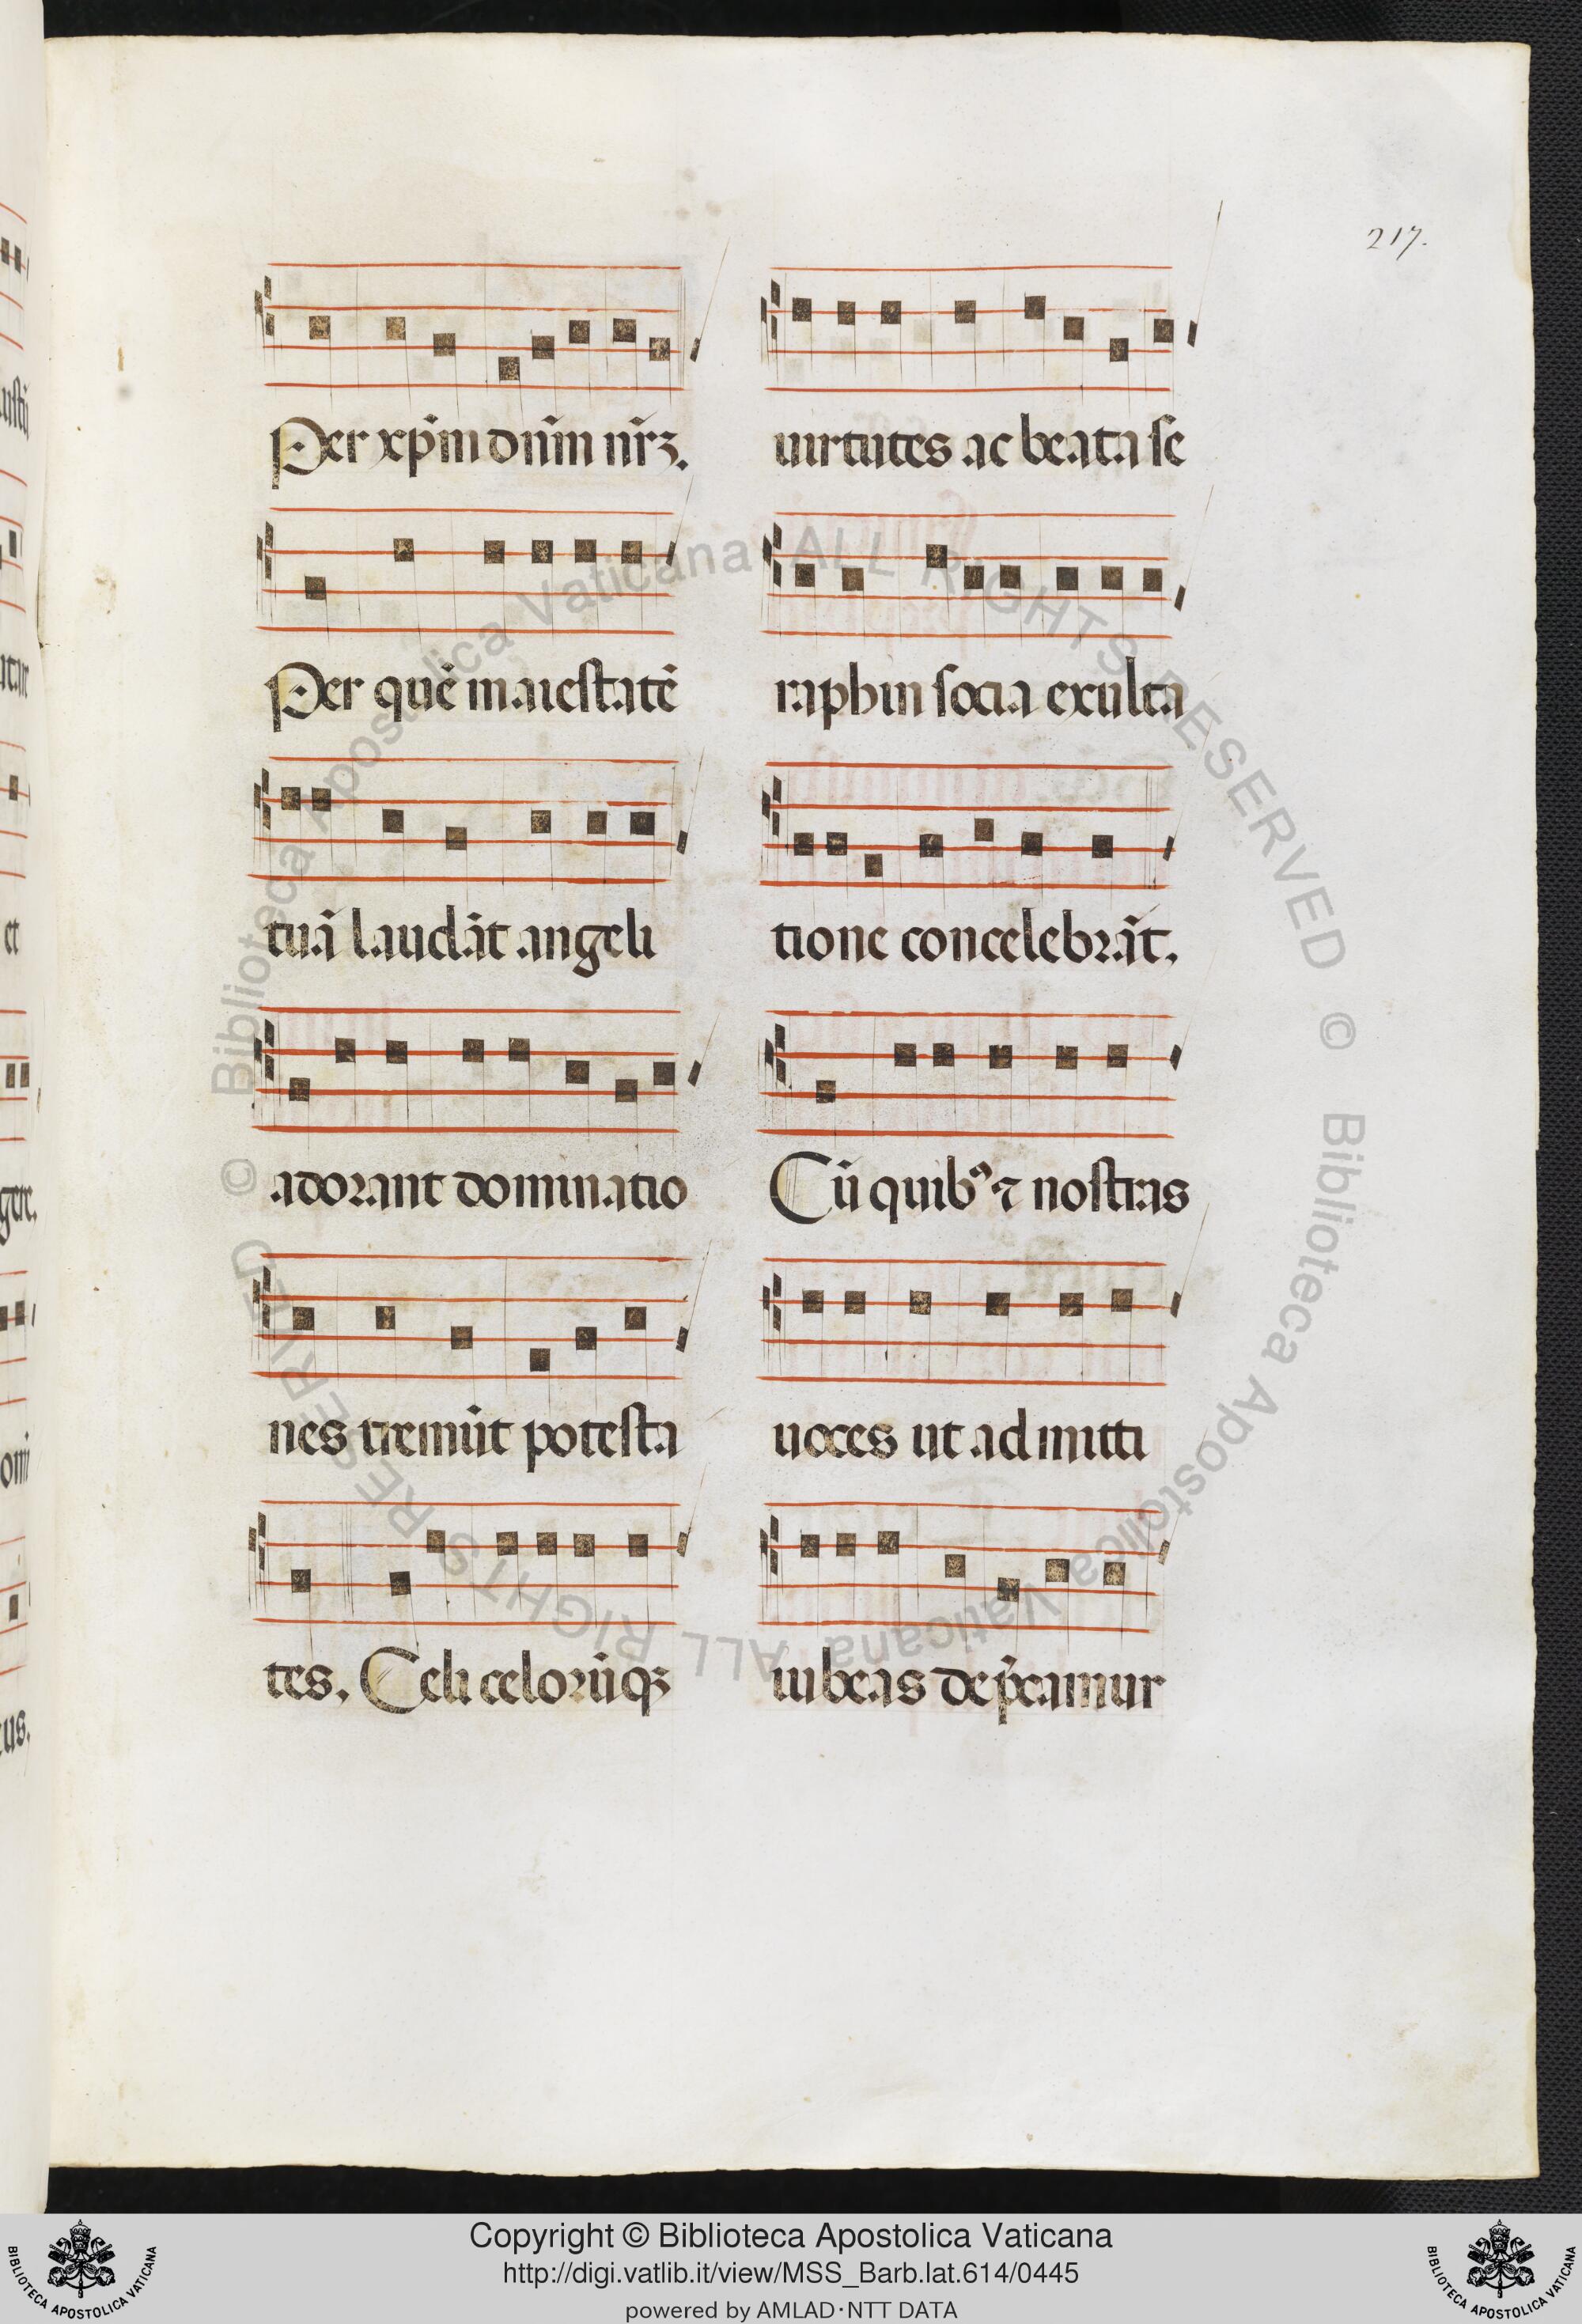 217.
Per xp̄m dn̄m nr̄ꝫ.
Per quē maiestatē
tuā laudāt angeli
adorant dominatio
nes tremūt potesta
tes. Celi celorūqꝫ
uirtutes ac beata se
raphin socia exulta
tione concelebrāt.
Cū quibꝰ ⁊ nostras
uoces ut admitti
iubeas dep̄camur
© Biblioteca Apostolica Vaticana ALL RIGHTS RESERVED © Biblioteca Apostolica Vaticana ALL RIGHTS RESERVED
Copyright © Biblioteca Apostolica Vaticana
http://digi.vatlib.it/view/MSS_Barb.lat.614/0445
powered by AMLAD·NTT DATA
BIBLIOTECA APOSTOLICA VATICANA
BIBLIOTECA APOSTOLICA VATICANA